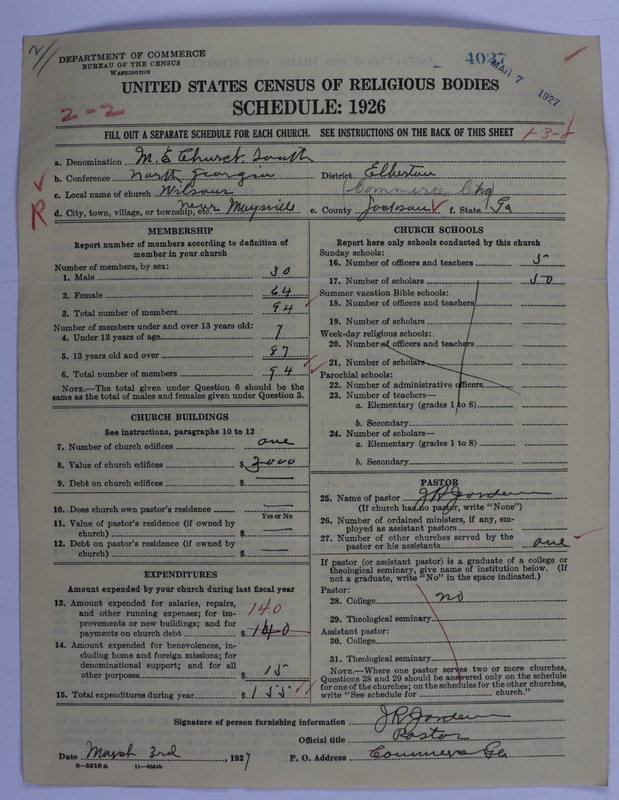 DEPARTMENT OF COMMERCE
BUREAU OF THE CENSUS
WASHINGTON
4027
MAR 7 1927
UNITED STATES CENSUS OF RELIGIOUS BODIES
2-2
SCHEDULE: 1926
FILL OUT A SEPARATE SCHEDULE FOR EACH CHURCH. SEE INSTRUCTIONS ON THE BACK OF THIS SHEET
a. Denomination M. E Church South
b. Conference North Georgia District Elberton
c. Local name of church Wilsons Commerce Chg
R d. City, town, village, or township, etc. near Maysville e. County Jackson f. State Ga
MEMBERSHIP
Report number of members according to definition of
member in your church
Number of members, by sex:
1. Male 30
2. Female 64
3. Total number of members 94
Number of members under and over 13 years old:
4. Under 13 years of age 7
5. 13 years old and over 87
6. Total number of members 94
NOTE.—The total given under Question 6 should be the
same as the total of males and females given under Question 3.
CHURCH BUILDINGS
See instructions, paragraphs 10 to 12
7. Number of church edifices one
8. Value of church edifices $ 3000
9. Debt on church edifices $ —
10. Does church own pastor's residence —
Yes or No
11. Value of pastor's residence (if owned by
church) $ —
12. Debt on pastor's residence (if owned by
church) $ —
EXPENDITURES
Amount expended by your church during last fiscal year
13. Amount expended for salaries, repairs,
and other running expenses; for im-
provements or new buildings; and for
payments on church debt $ 140
140
14. Amount expended for benevolences, in-
cluding home and foreign missions; for
denominational support; and for all
other purposes $ 15
15. Total expenditures during year $ 155
CHURCH SCHOOLS
Report here only schools conducted by this church
Sunday schools:
16. Number of officers and teachers 5
17. Number of scholars 50
Summer vacation Bible schools:
18. Number of officers and teachers
19. Number of scholars
Week-day religious schools:
20. Number of officers and teachers
21. Number of scholars
Parochial schools:
22. Number of administrative officers
23. Number of teachers—
a. Elementary (grades 1 to 8)
b. Secondary
24. Number of scholars—
a. Elementary (grades 1 to 8)
b. Secondary
PASTOR
25. Name of pastor J R Jordan
(If church has no pastor, write "None")
26. Number of ordained ministers, if any, em-
ployed as assistant pastors
27. Number of other churches served by the
pastor or his assistants one
If pastor (or assistant pastor) is a graduate of a college or
theological seminary, give name of institution below. (If
not a graduate, write "No" in the space indicated.)
Pastor:
28. College no
29. Theological seminary
Assistant pastor:
30. College
31. Theological seminary
NOTE.—Where one pastor serves two or more churches,
Questions 28 and 29 should be answered only on the schedule
for one of the churches; on the schedules for the other churches,
write "See schedule for church."
Signature of person furnishing information J R Jordan
Official title Pastor
Date March 3rd, 1927 P. O. Address Commerce Ga
8—5518a 11—9664b